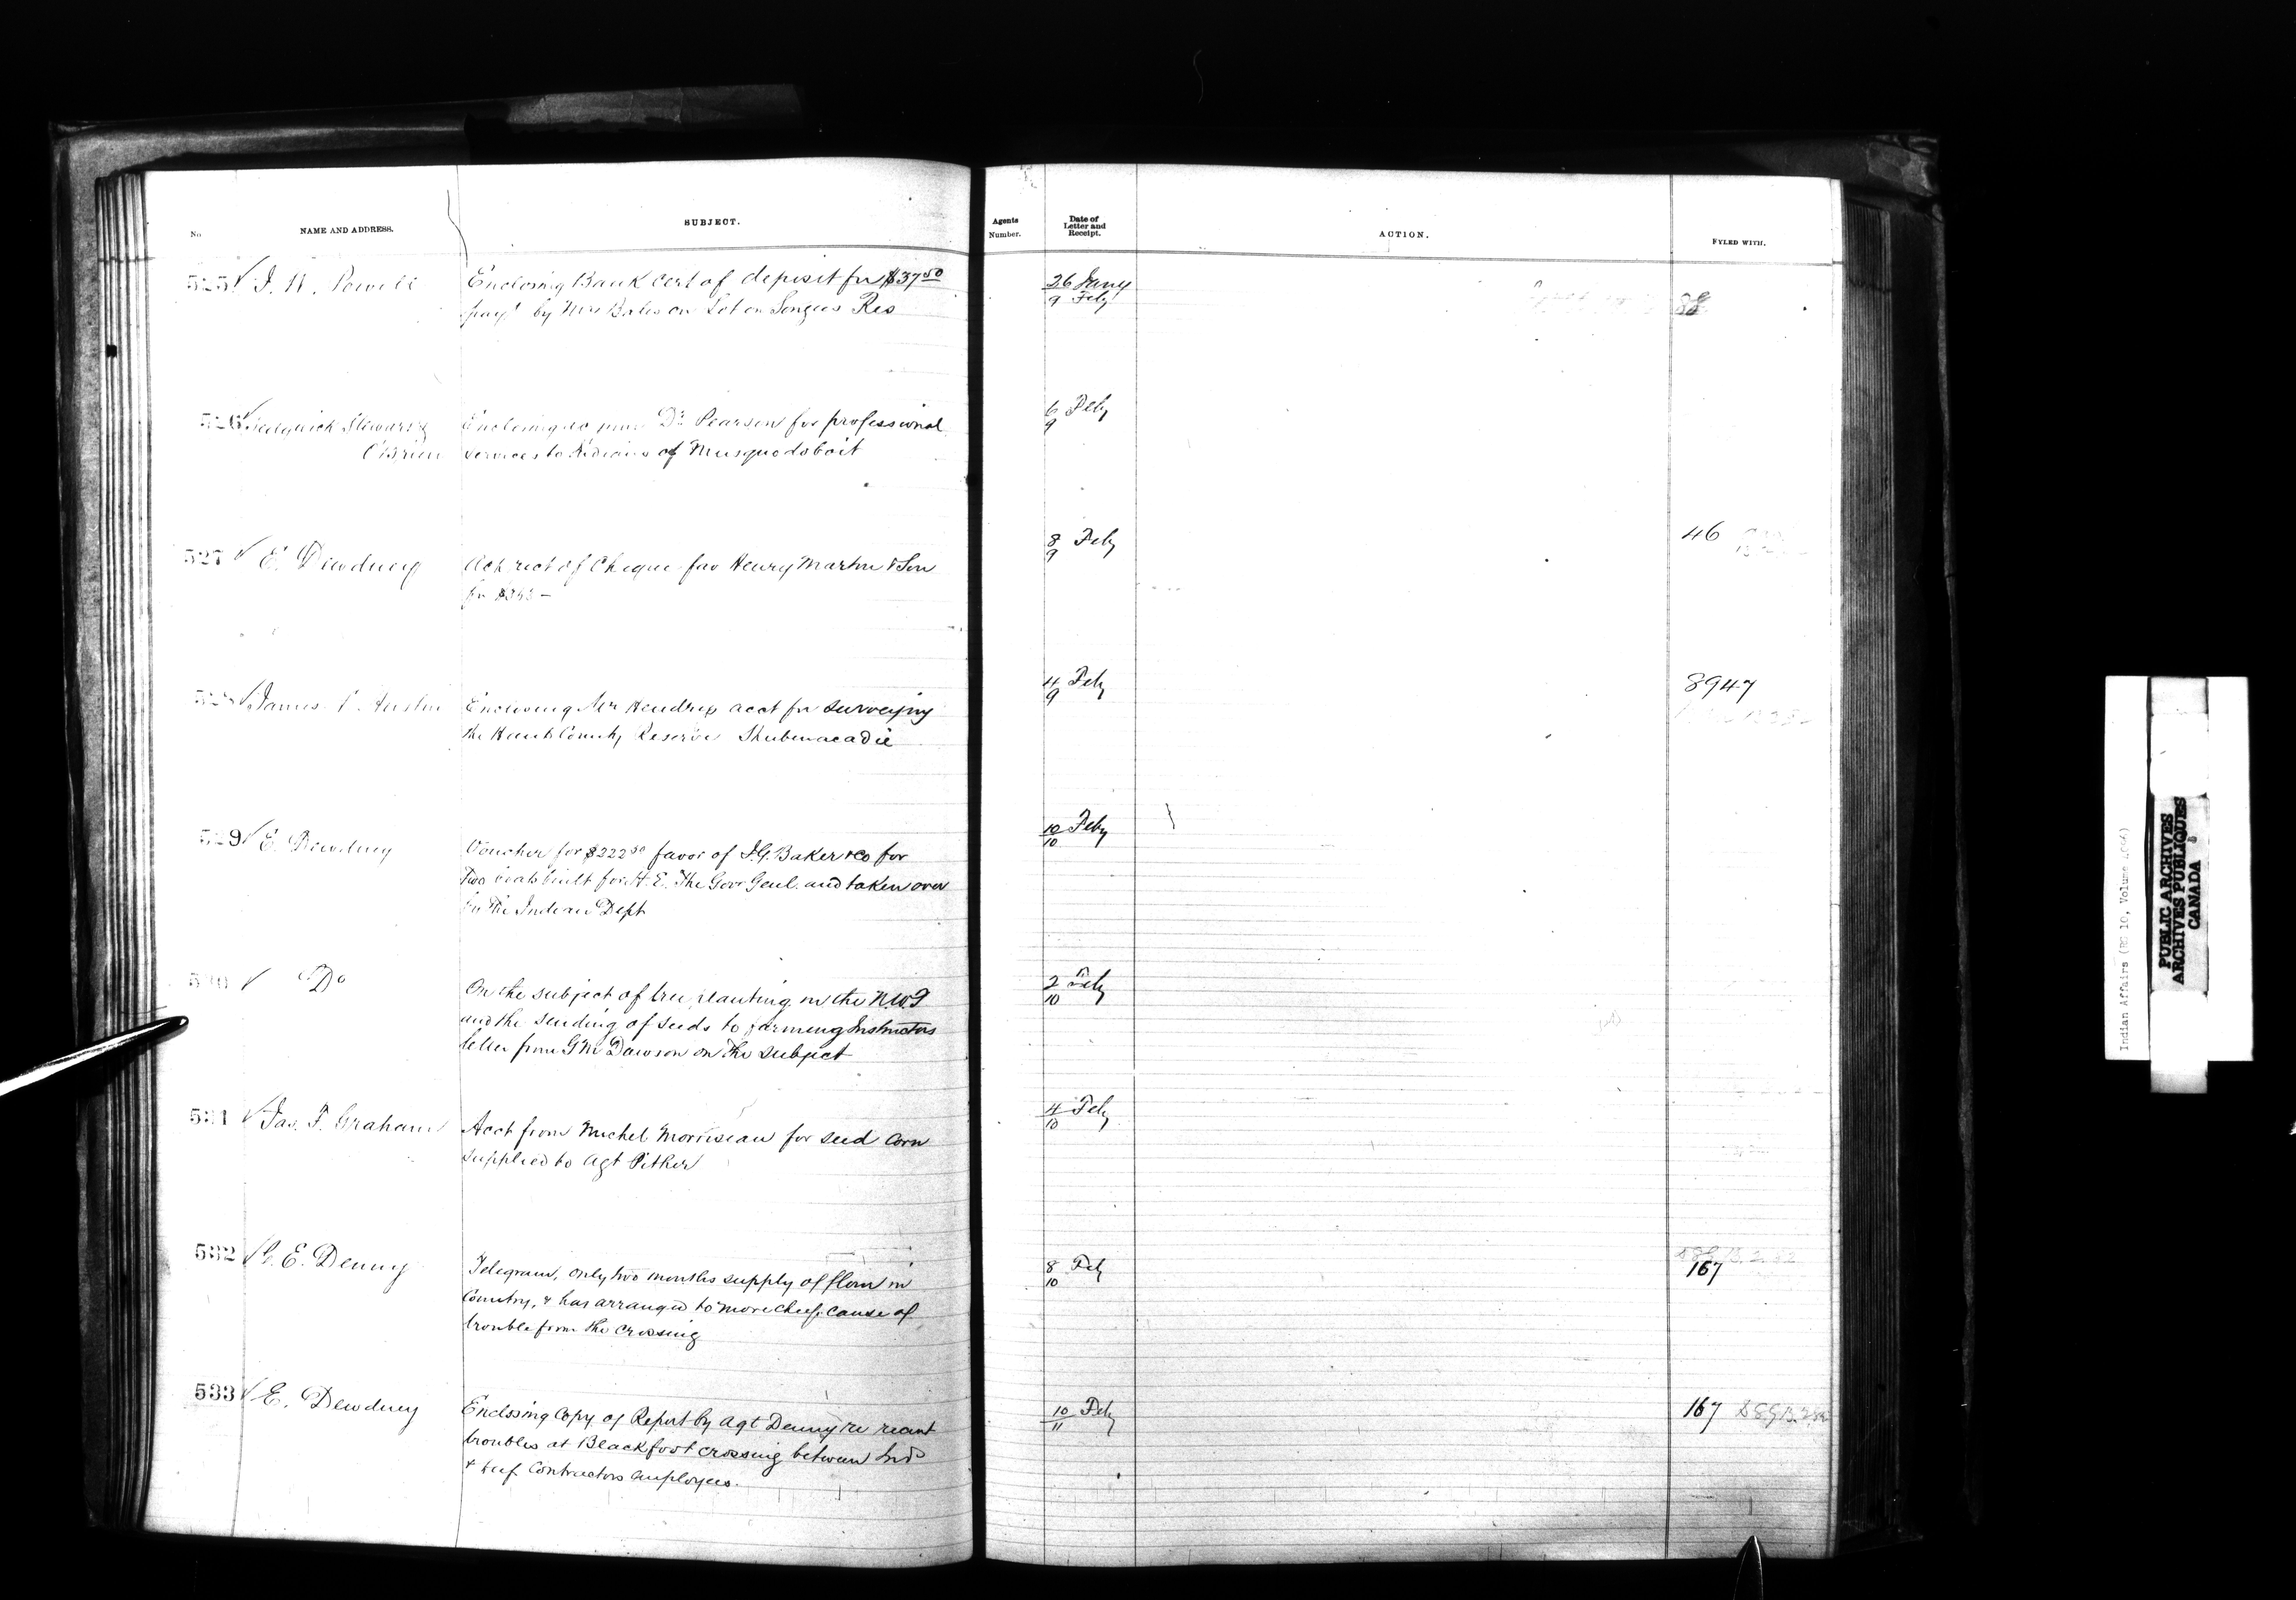 No. NAME AND ADDRESS. SUBJECT. Agents Number. Date of Letter and Receipt. ACTION. FYLED WITH.
525 ✓ I. W. Powell Enclosing Bank Cert of deposit for $37 50 26 Jany
payt by Mrs Bales on Lot on Songees Res 9 Feby 88
526 ✓ Sedgwick Stewart & Enclosing acct Dr Pearson for professional 6 Feby
O'Brien services to Indians of Musquodoboit 9
527 ✓ E. Dewdney Ack rect of Cheque fav Henry Martin & Son 8 Feby 46
for 9
528 ✓ James Austin Enclosing Mr Hendrys acct for surveying 4 Feby 8947
the Hants County Reserve Shubenacadie 9
529 ✓ E. Dewdney Voucher for $222 50 favor of I. G. Baker & Co for 10 Feby
Two boats built for H. E. The Gov Genl. and taken over 10
by the Indian Dept
530 ✓ Do On the subject of tree planting in the N.W.T 2 Feby
and the sending of seeds to farming Instructors 10
letter from G M Dawson on the subject
531 ✓ Jas. F. Graham Acct from Michel Morriseau for seed corn 4 Feby
supplied to Agt Pither 10
532 ✓ C. E. Denny Telegram, only two months supply of flour in 8 Feby 167
Country, & has arranged to move chief, cause of 10
trouble from the crossing
533 ✓ E. Dewdney Enclosing Copy of Report by Agt Denny re recent 10 Feby 167
troubles at Blackfoot crossing between Inds 11
& beef Contractors employees.
Indian Affairs (RG 10, Volume
PUBLIC ARCHIVES
ARCHIVES PUBLIQUES
CANADA